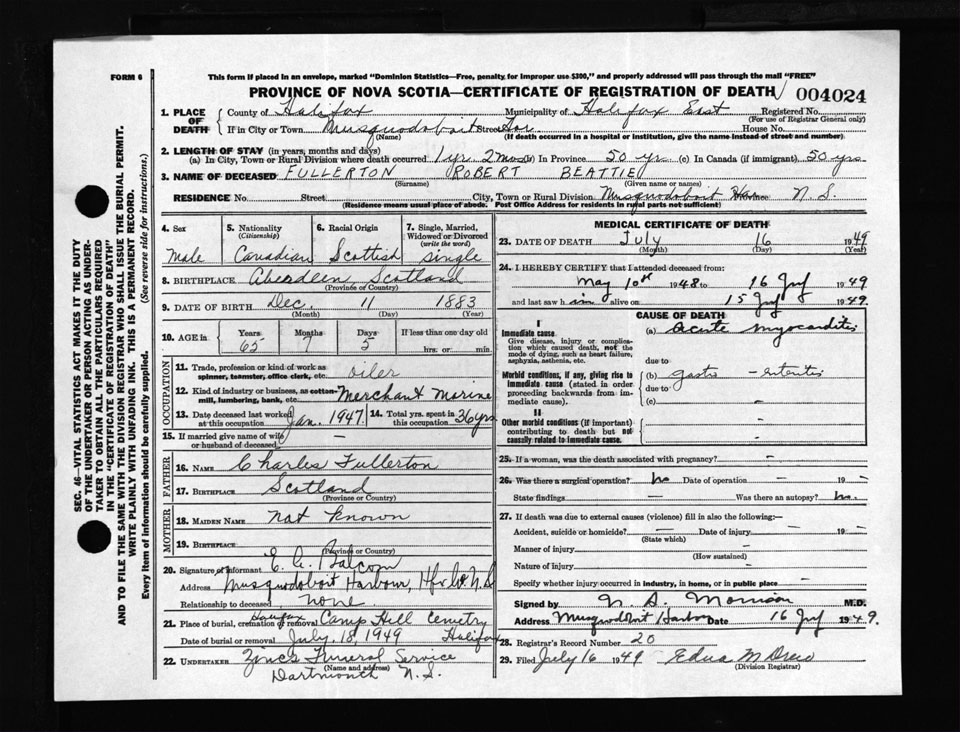 FORM 6
This form if placed in an envelope, marked "Dominion Statistics—Free, penalty for improper use $300," and properly addressed will pass through the mail "FREE"
PROVINCE OF NOVA SCOTIA—CERTIFICATE OF REGISTRATION OF DEATH 004024
1. PLACE OF DEATH County of Halifax Municipality of Halifax East Registered No.
(For use of Registrar General only)
If in City or Town Musquodoboit Har. Street House No.
(Name) (If death occurred in a hospital or institution, give the name instead of street and number)
2. LENGTH OF STAY (in years, months and days)
(a) In City, Town or Rural Division where death occurred 1 yr 2 mos (b) In Province 50 yrs (c) In Canada (if immigrant) 50 yrs
3. NAME OF DECEASED FULLERTON ROBERT BEATTIE
(Surname) (Given name or names)
RESIDENCE No. Street City, Town or Rural Division Musquodoboit Har Province N. S.
(Residence means usual place of abode. Post Office Address for residents in rural parts not sufficient)
4. Sex 5. Nationality (Citizenship) 6. Racial Origin 7. Single, Married, Widowed or Divorced (write the word)
Male Canadian Scottish Single
8. BIRTHPLACE Aberdeen Scotland
(Province or Country)
9. DATE OF BIRTH Dec. 11 1883
(Month) (Day) (Year)
10. AGE in Years Months Days If less than one day old
65 7 5 hrs. or min.
OCCUPATION
11. Trade, profession or kind of work as spinner, teamster, office clerk, etc. oiler
12. Kind of industry or business, as cotton-mill, lumbering, bank, etc. Merchant Marine
13. Date deceased last worked at this occupation Jan. 1947 14. Total yrs. spent in this occupation 36 yrs
15. If married give name of wife or husband of deceased —
FATHER
16. NAME Charles Fullerton
17. BIRTHPLACE Scotland
(Province or Country)
MOTHER
18. MAIDEN NAME not known
19. BIRTHPLACE
(Province or Country)
20. Signature of informant E. A. Balcom
Address Musquodoboit Harbour, Hfx Co. N.S
Relationship to deceased none
21. Place of burial, cremation or removal Halifax Camp Hill Cemetry
Date of burial or removal July 18, 1949 Halifax
22. UNDERTAKER Zincs Funeral Service
(Name and address)
Dartmouth N. S.
MEDICAL CERTIFICATE OF DEATH
23. DATE OF DEATH July 16 1949
(Month) (Day) (Year)
24. I HEREBY CERTIFY that I attended deceased from:
May 10th 1948 to 16 July 1949
and last saw him alive on 15 July 1949.
CAUSE OF DEATH
I
Immediate cause (a) Acute myocarditis
Give disease, injury or complication which caused death, not the mode of dying, such as heart failure, asphyxia, asthenia, etc.
due to
Morbid conditions, if any, giving rise to immediate cause (stated in order proceeding backwards from immediate cause).
(b) gastro - enteritis
due to
(c) —
II
Other morbid conditions (if important) contributing to death but not causally related to immediate cause.
25. If a woman, was the death associated with pregnancy? —
26. Was there a surgical operation? no Date of operation — 19 —
State findings — Was there an autopsy? no.
27. If death was due to external causes (violence) fill in also the following:—
Accident, suicide or homicide? Date of injury — 19 —
(State which)
Manner of injury —
(How sustained)
Nature of injury —
Specify whether injury occurred in industry, in home, or in public place —
Signed by N. S. Morrison M.D.
Address Musquodoboit Harbor Date 16 July 1949
28. Registrar's Record Number 20
29. Filed July 16 1949 Edna M
(Division Registrar)
SEC. 46—VITAL STATISTICS ACT MAKES IT THE DUTY
OF THE UNDERTAKER OR PERSON ACTING AS UNDER-
TAKER TO OBTAIN ALL THE PARTICULARS REQUIRED
IN THE "CERTIFICATE OF REGISTRATION OF DEATH"
AND TO FILE THE SAME WITH THE DIVISION REGISTRAR WHO SHALL ISSUE THE BURIAL PERMIT.
WRITE PLAINLY WITH UNFADING INK. THIS IS A PERMANENT RECORD.
Every item of information should be carefully supplied. (See reverse side for instructions.)